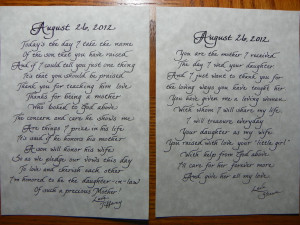 August 26, 2012
Today's the day I take the name
Of the son that you have raised
And if I could tell you just one thing
It's that you should be praised
Thank you for teaching him love
Thanks for being a mother
Who looked to God above
The concern and care he shows me
Are things I prize in his life
It's said if he honors his mother
A son will honor his wife
So as we pledge our vows this day
To love and cherish each other
I'm honored to be the daughter-in-law
Of such a precious Mother!
Love,
August 26, 2012
You are the mother I received
The day I wed your daughter
And I just want to thank you for
the loving ways you have taught her
You have given me a loving woman
With whom I will share my life
I will treasure everyday
Your daughter as my wife
You raised with love your "little girl"
With help from God above
I'll care for her forever more
And give her all my love.
Love,